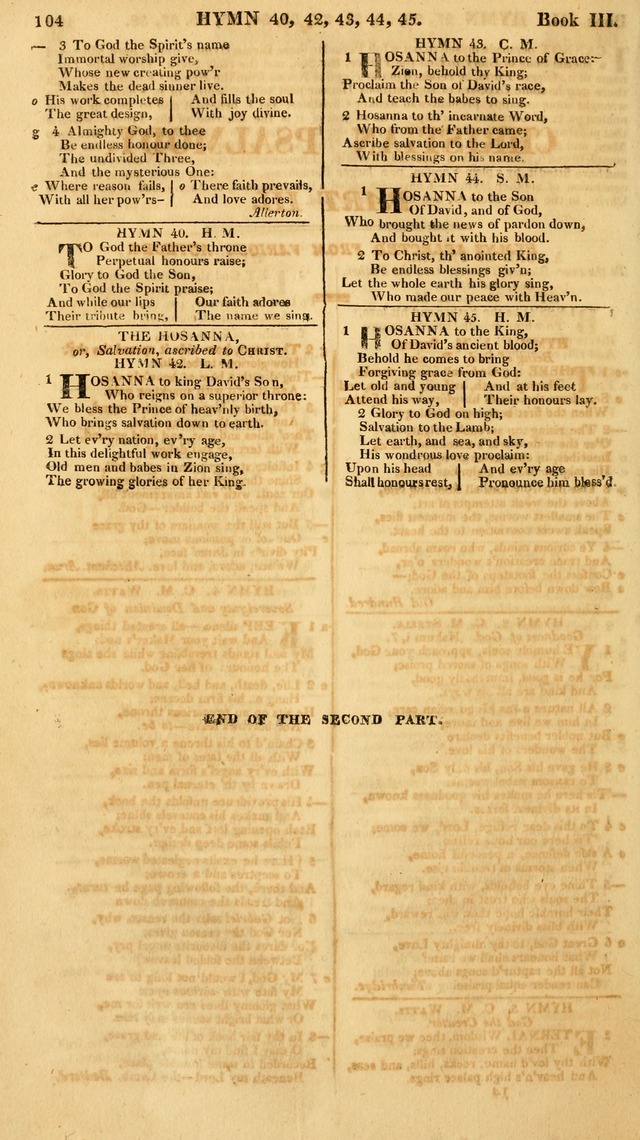 104 HYMN 40, 42, 43, 44, 45. Book III.
— 3 To God the Spirit's name
Immortal worship give,
Whose new creating pow'r
Makes the dead sinner live.
o His work completes | And fills the soul
The great design, | With joy divine.
g 4 Almighty God, to thee
Be endless honour done;
The undivided Three,
And the mysterious One:
e Where reason fails, | o There faith prevails,
With all her pow'rs— | And love adores.
Allerton.
HYMN 40. H. M.
TO God the Father's throne
Perpetual honours raise;
Glory to God the Son,
To God the Spirit praise;
And while our lips | Our faith adores
Their tribute bring, | The name we sing.
THE HOSANNA,
or, Salvation, ascribed to CHRIST.
HYMN 42. L. M.
1 HOSANNA to king David's Son,
Who reigns on a superior throne:
We bless the Prince of heav'nly birth,
Who brings salvation down to earth.
2 Let ev'ry nation, ev'ry age,
In this delightful work engage,
Old men and babes in Zion sing,
The growing glories of her King.
HYMN 43. C. M.
1 HOSANNA to the Prince of Grace:—
Zion, behold thy King;
Proclaim the Son of David's race,
And teach the babes to sing.
2 Hosanna to th' incarnate Word,
Who from the Father came;
Ascribe salvation to the Lord,
With blessings on his name.
HYMN 44. S. M.
1 HOSANNA to the Son
Of David, and of God,
Who brought the news of pardon down,
And bought it with his blood.
2 To Christ, th' anointed King,
Be endless blessings giv'n;
Let the whole earth his glory sing,
Who made our peace with Heav'n.
HYMN 45. H. M.
1 HOSANNA to the King,
Of David's ancient blood;
Behold he comes to bring
Forgiving grace from God:
Let old and young | And at his feet
Attend his way, | Their honours lay.
2 Glory to God on high;
Salvation to the Lamb;
Let earth, and sea, and sky,
His wondrous love proclaim:
Upon his head | And ev'ry age
Shall honours rest, | Pronounce him bless'd.
END OF THE SECOND PART.